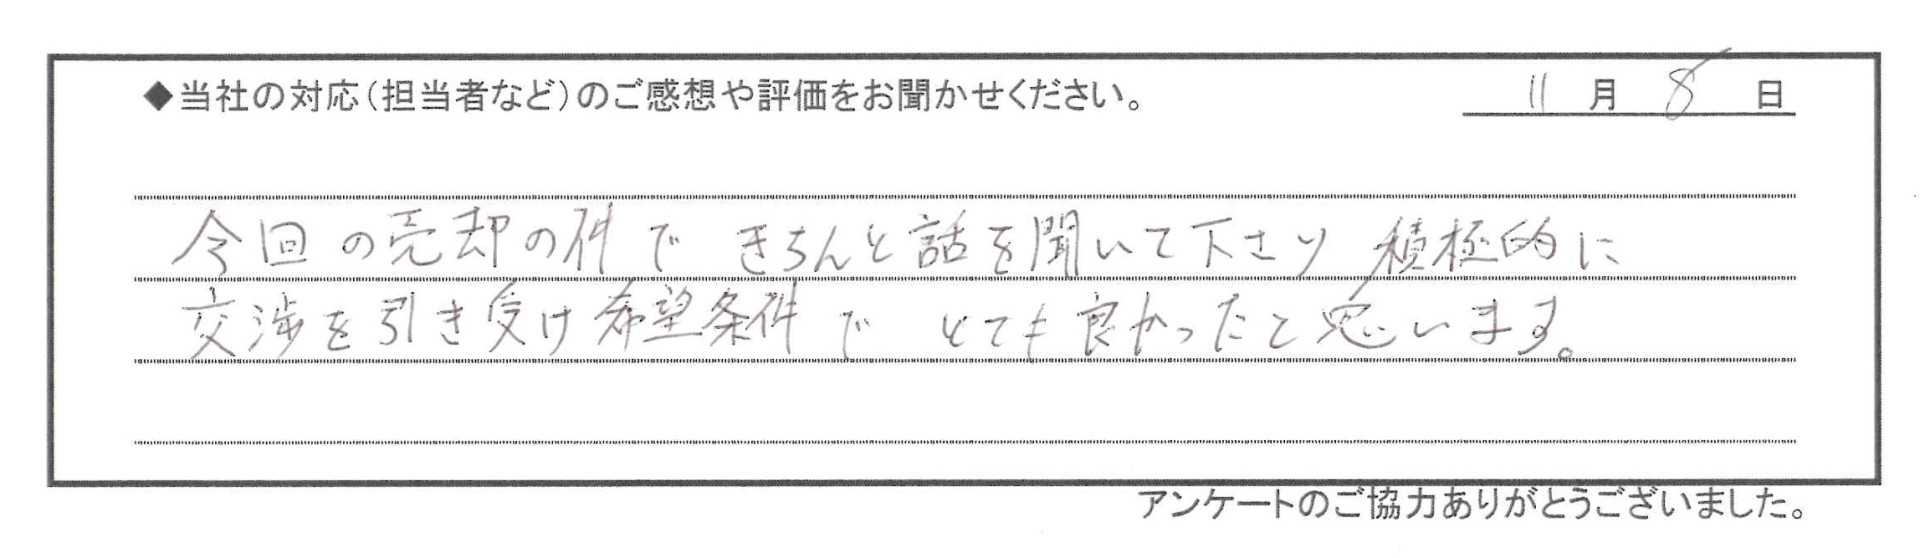 ◆当社の対応(担当者など)のご感想や評価をお聞かせください。 11月8日
今回の売却の件で きちんと話を聞いて下さり 積極的に
交渉を引き受け希望条件で とても良かったと思います。
アンケートのご協力ありがとうございました。